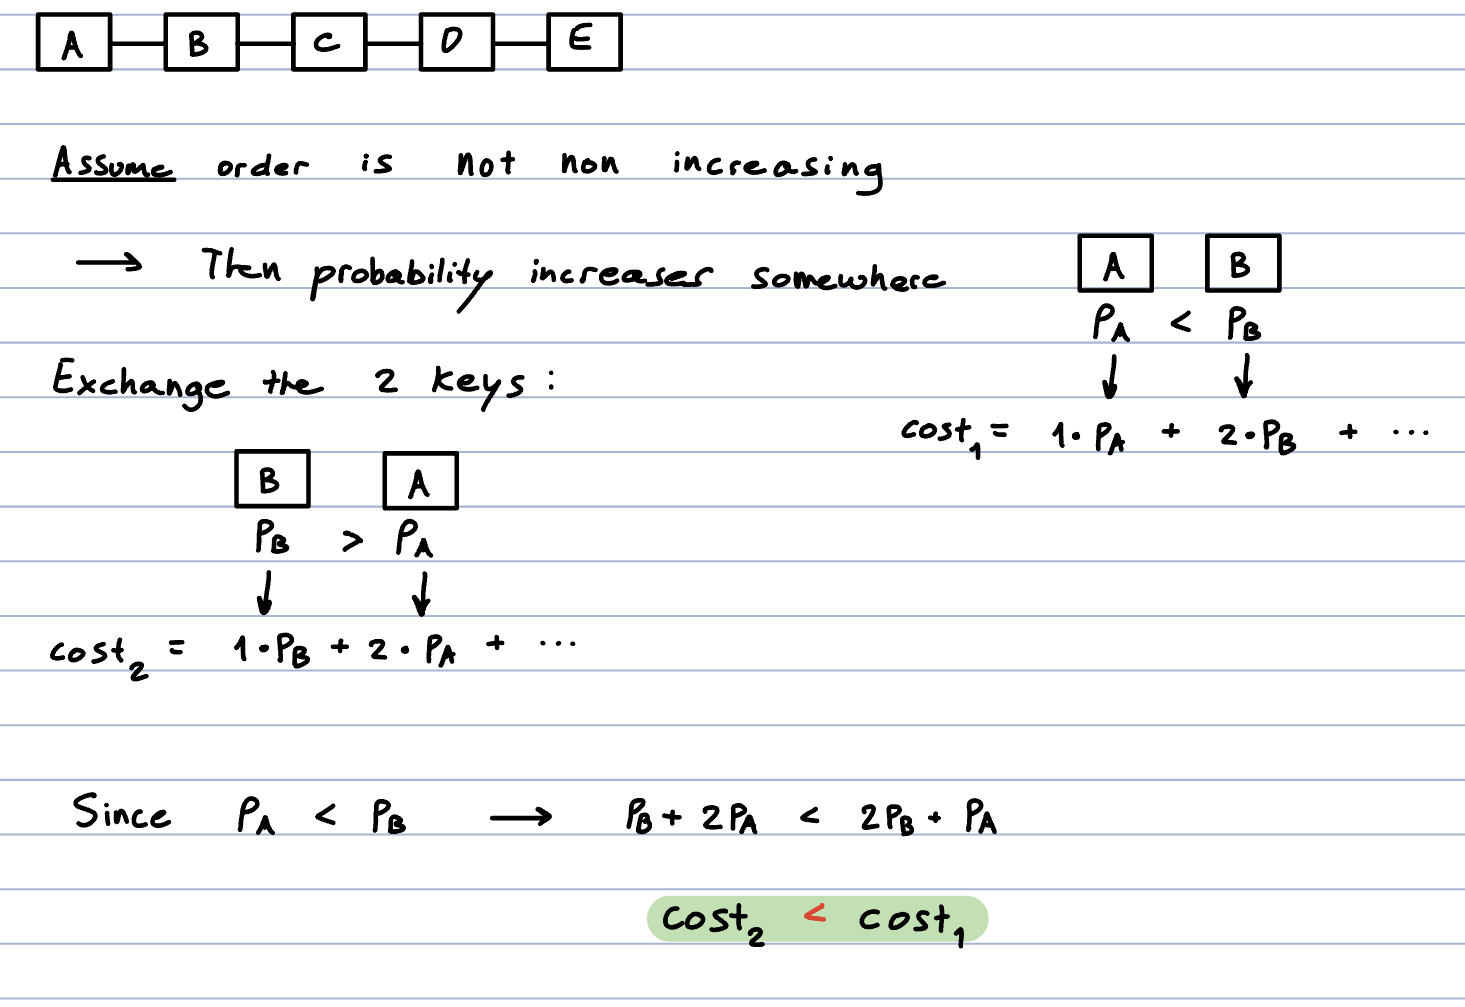 A B C D E
Assume order is not non increasing
→ Then probability increases somewhere
A B
P_A < P_B
↓ ↓
cost_1 = 1·P_A + 2·P_B + ...
Exchange the 2 keys:
B A
P_B > P_A
↓ ↓
cost_2 = 1·P_B + 2·P_A + ...
Since P_A < P_B → P_B + 2P_A < 2P_B + P_A
cost_2 < cost_1